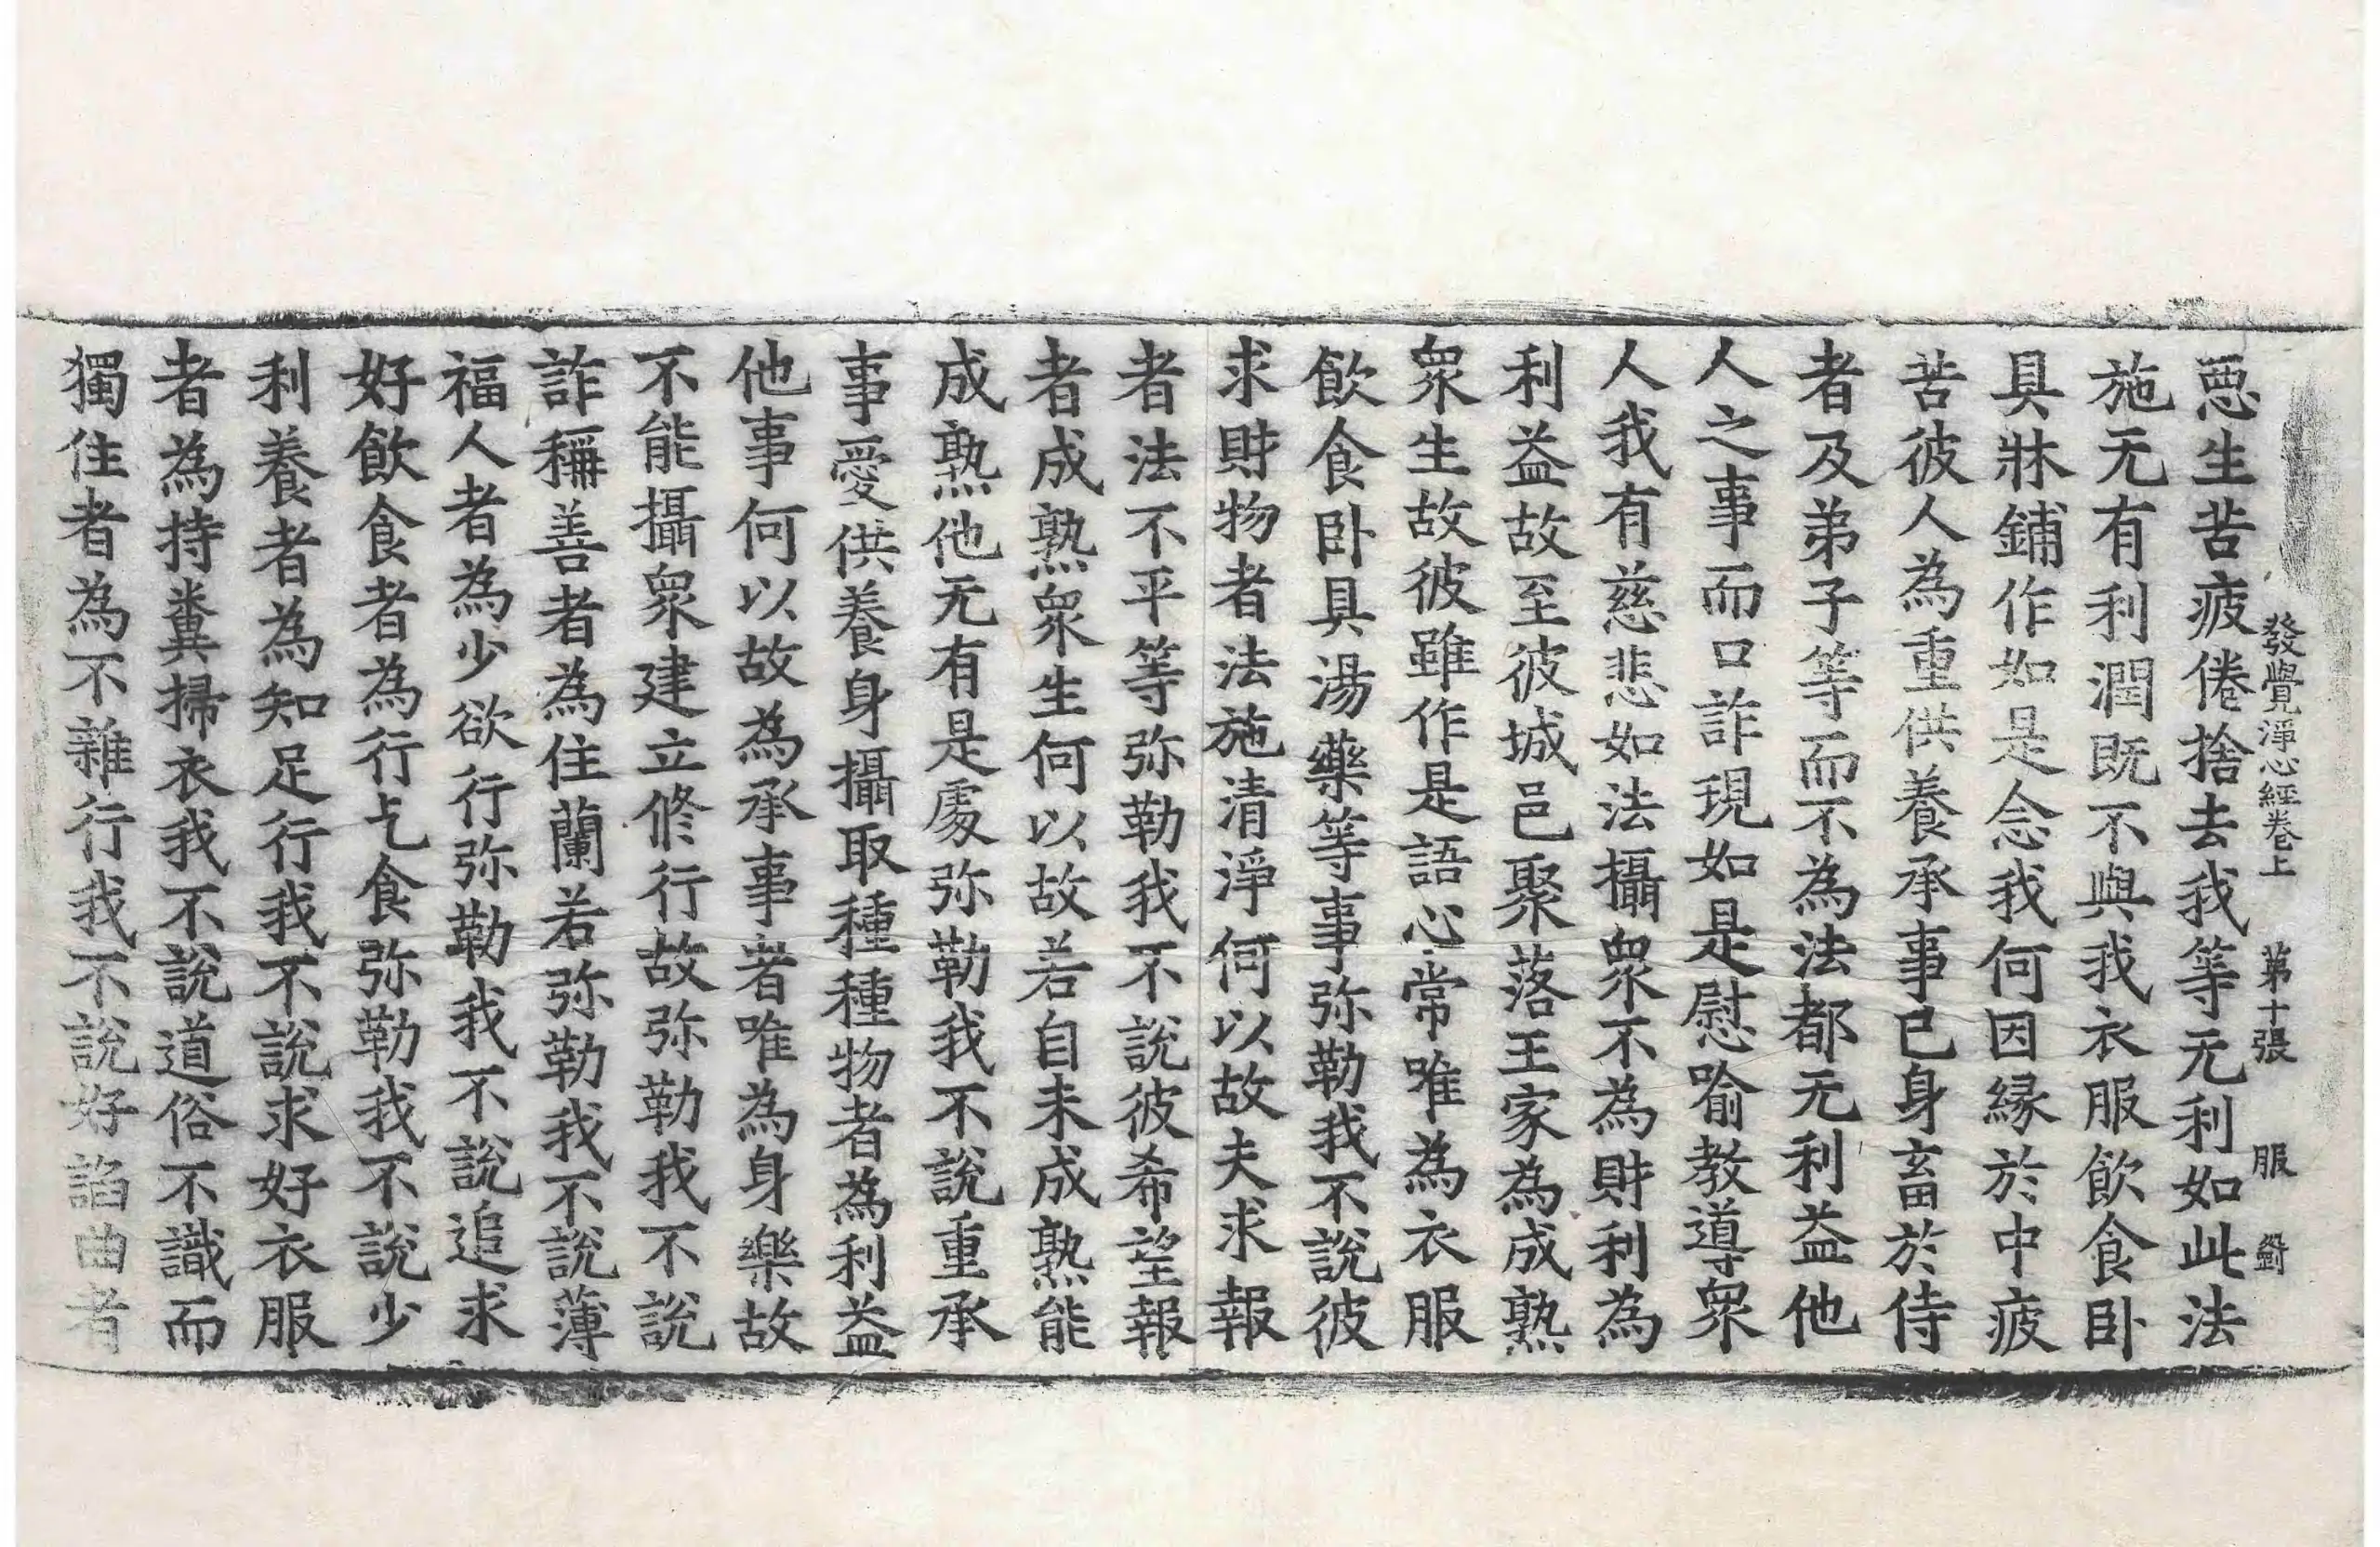 發覺淨心經卷上 第十張 服
惡生苦疲倦捨去我等无利如此法
施无有利潤既不與我衣服飲食卧
具牀鋪作如是念我何因緣於中疲
苦彼人為重供養承事已身畜於侍
者及弟子等而不為法都无利益他
人之事而口詐現如是慰喻教導衆
人我有慈悲如法攝衆不為財利為
利益故至彼城邑聚落王家為成熟
衆生故彼雖作是語心常唯為衣服
飲食卧具湯藥等事弥勒我不說彼
求財物者法施清淨何以故夫求報
者法不平等弥勒我不說彼希望報
者成熟衆生何以故若自未成熟能
成熟他无有是處弥勒我不說重承
事愛供養身攝取種種物者為利益
他事何以故為承事者唯為身樂故
不能攝衆建立修行故弥勒我不說
詐稱善者為住蘭若弥勒我不說薄
福人者為少欲行弥勒我不說追求
好飲食者為行乞食弥勒我不說少
利養者為知足行我不說求好衣服
者為持糞掃衣我不說道俗不識而
獨住者為不雜行我不說好諂曲者